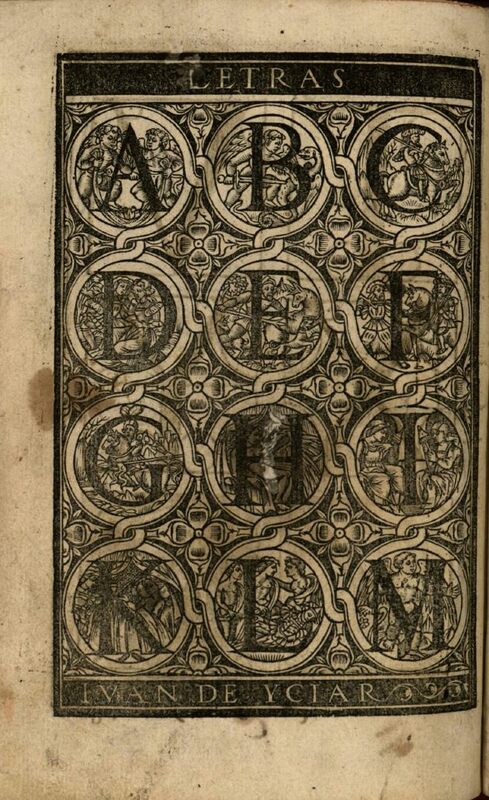 LETRAS
A B C
D E F
G H I
K L M
IVAN DE YCIAR